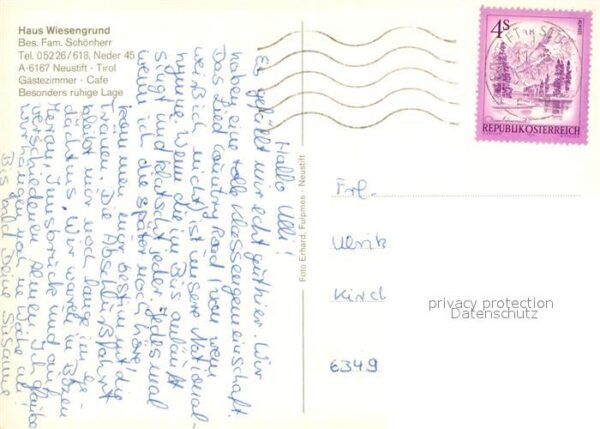 Haus Wiesengrund
Bes. Fam. Schönherr
Tel. 05226/618, Neder 45
A-6167 Neustift - Tirol
Gästezimmer - Cafe
Besonders ruhige Lage
Hallo Ulli!
Es gefällt mir echt gut hier. Wir
haben eine tolle Klassengemeinschaft.
Das Lied Country Road (von wem
weiß ich nicht) ist unsere National-
hymne. Wenn die im Bus anläuft
singt und klatscht jeder. Jedesmal
wenn ich die später noch höre,
kommen mir bestimmt die
Tränen. Die Abschlußfahrt
bleibt mir noch lange im Ge-
dächtnis. Wir waren in Bozen
Meran, Innsbruck und auf
verschiedenen Almen. Ich glaube
wir hängen noch ne Woche an
Bis bald Deine Susanne
Foto Erhard, Fulpmes - Neustift
4S
REPUBLIK ÖSTERREICH
Frl.
Ulrik
Kirch
6349
privacy protection
Datenschutz